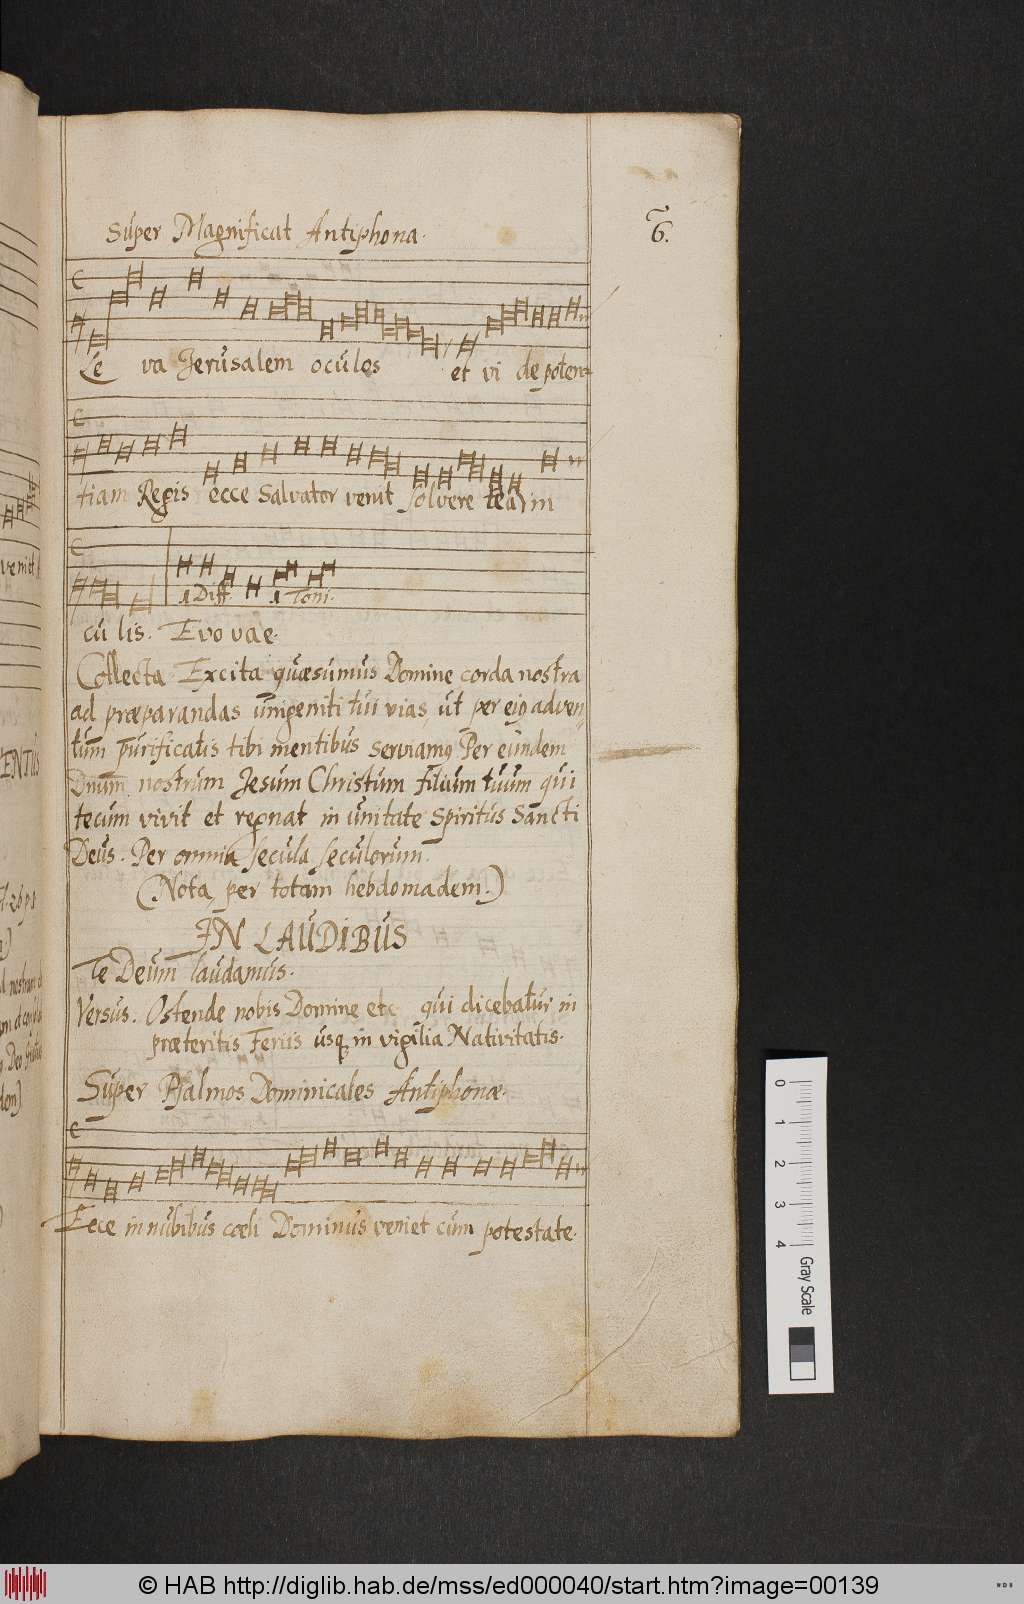 6.
Super Magnificat Antiphona.
Le va Jerusalem oculos et vi de poten-
tiam Regis ecce Salvator venit solvere te a vin
1 Diff. 1 Toni.
cu lis. Evovae.
Collecta Excita quæsumus Domine corda nostra
ad præparandas unigeniti tui vias, ut per ejꝰ adven,
tum purificatis tibi mentibus serviamꝰ Per eundem
Dnum nostrum Jesum Christum filium tuum qui
tecum vivit et regnat in unitate Spiritus Sancti
Deus. Per omnia secula seculorum.
(Nota per totam hebdomadem.)
IN LAUDIBUS
Te Deum laudamus.
Versus. Ostende nobis Domine etc qui dicebatur in
præteritis Feriis usq in vigilia Nativitatis.
Super Psalmos Dominicales Antiphonæ.
Ecce in nubibus cœli Dominus veniet cum potestate.
veniet
ENTUS
0 1 2 3 4 Gray Scale
© HAB http://diglib.hab.de/mss/ed000040/start.htm?image=00139